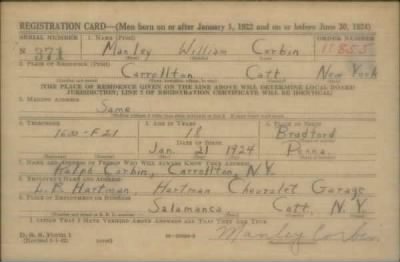 REGISTRATION CARD—(Men born on or after January 1, 1922 and on or before June 30, 1924)
SERIAL NUMBER 1. NAME (Print) ORDER NUMBER
N 371 Manley William Corbin 11855
2. PLACE OF RESIDENCE (Print)
Carrollton Catt New York
[THE PLACE OF RESIDENCE GIVEN ON THE LINE ABOVE WILL DETERMINE LOCAL BOARD
JURISDICTION; LINE 2 OF REGISTRATION CERTIFICATE WILL BE IDENTICAL]
3. MAILING ADDRESS
Same
4. TELEPHONE 5. AGE IN YEARS 6. PLACE OF BIRTH
1600-F21 18 Bradford
DATE OF BIRTH
Jan. 21 1924 Penna.
7. NAME AND ADDRESS OF PERSON WHO WILL ALWAYS KNOW YOUR ADDRESS
Ralph Corbin, Carrollton, N.Y.
8. EMPLOYER'S NAME AND ADDRESS
L. B. Hartman, Hartman Chevrolet Garage
9. PLACE OF EMPLOYMENT OR BUSINESS
Salamanca Catt. N.Y.
I AFFIRM THAT I HAVE VERIFIED ABOVE ANSWERS AND THAT THEY ARE TRUE.
D. S. S. Form 1
Manley Corbin